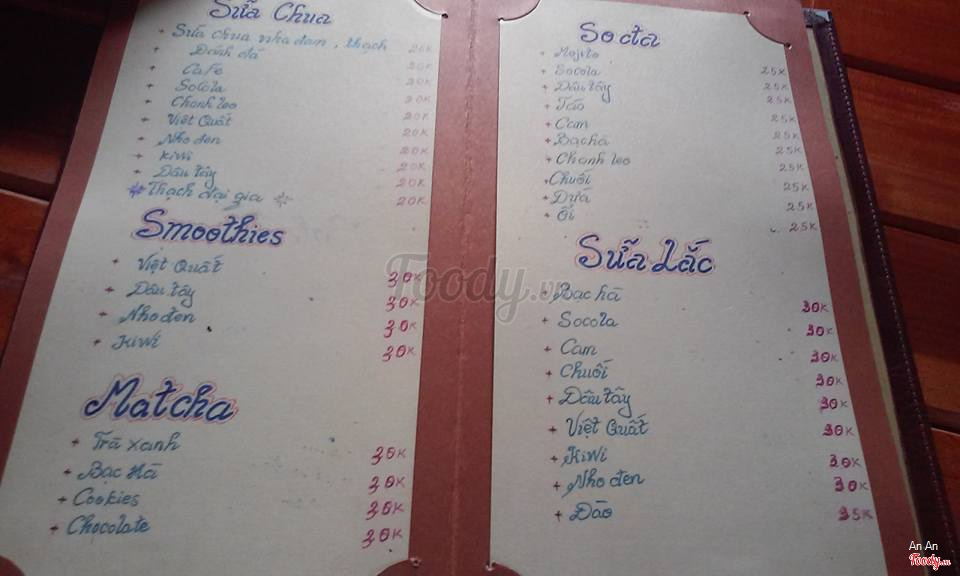 Sữa Chua
+ Sữa chua nha đam, thạch 20K
+ Đánh đá 20K
+ Cafe 20K
+ Socola 20K
+ Chanh leo 20K
+ Việt Quất 20K
+ Nho đen 20K
+ Kiwi 20K
+ Dâu tây 20K
* Thạch đại gia * 20K
Smoothies
+ Việt Quất 30K
+ Dâu tây 30K
+ Nho đen 30K
+ Kiwi 30K
Matcha
+ Trà xanh 30K
+ Bạc Hà 30K
+ Cookies 30K
+ Chocolate 30K
Sođa
+ Mojito 25K
+ Socola 25K
+ Dâu tây 25K
+ Táo 25K
+ Cam 25K
+ Bạc hà 25K
+ Chanh leo 25K
+ Chuối 25K
+ Dứa 25K
+ Ổi 25K
Sữa Lắc
+ Bạc hà 30K
+ Socola 30K
+ Cam 30K
+ Chuối 30K
+ Dâu tây 30K
+ Việt Quất 30K
+ Kiwi 30K
+ Nho đen 30K
+ Đào 35K
Foody.vn
An An
Foody.vn